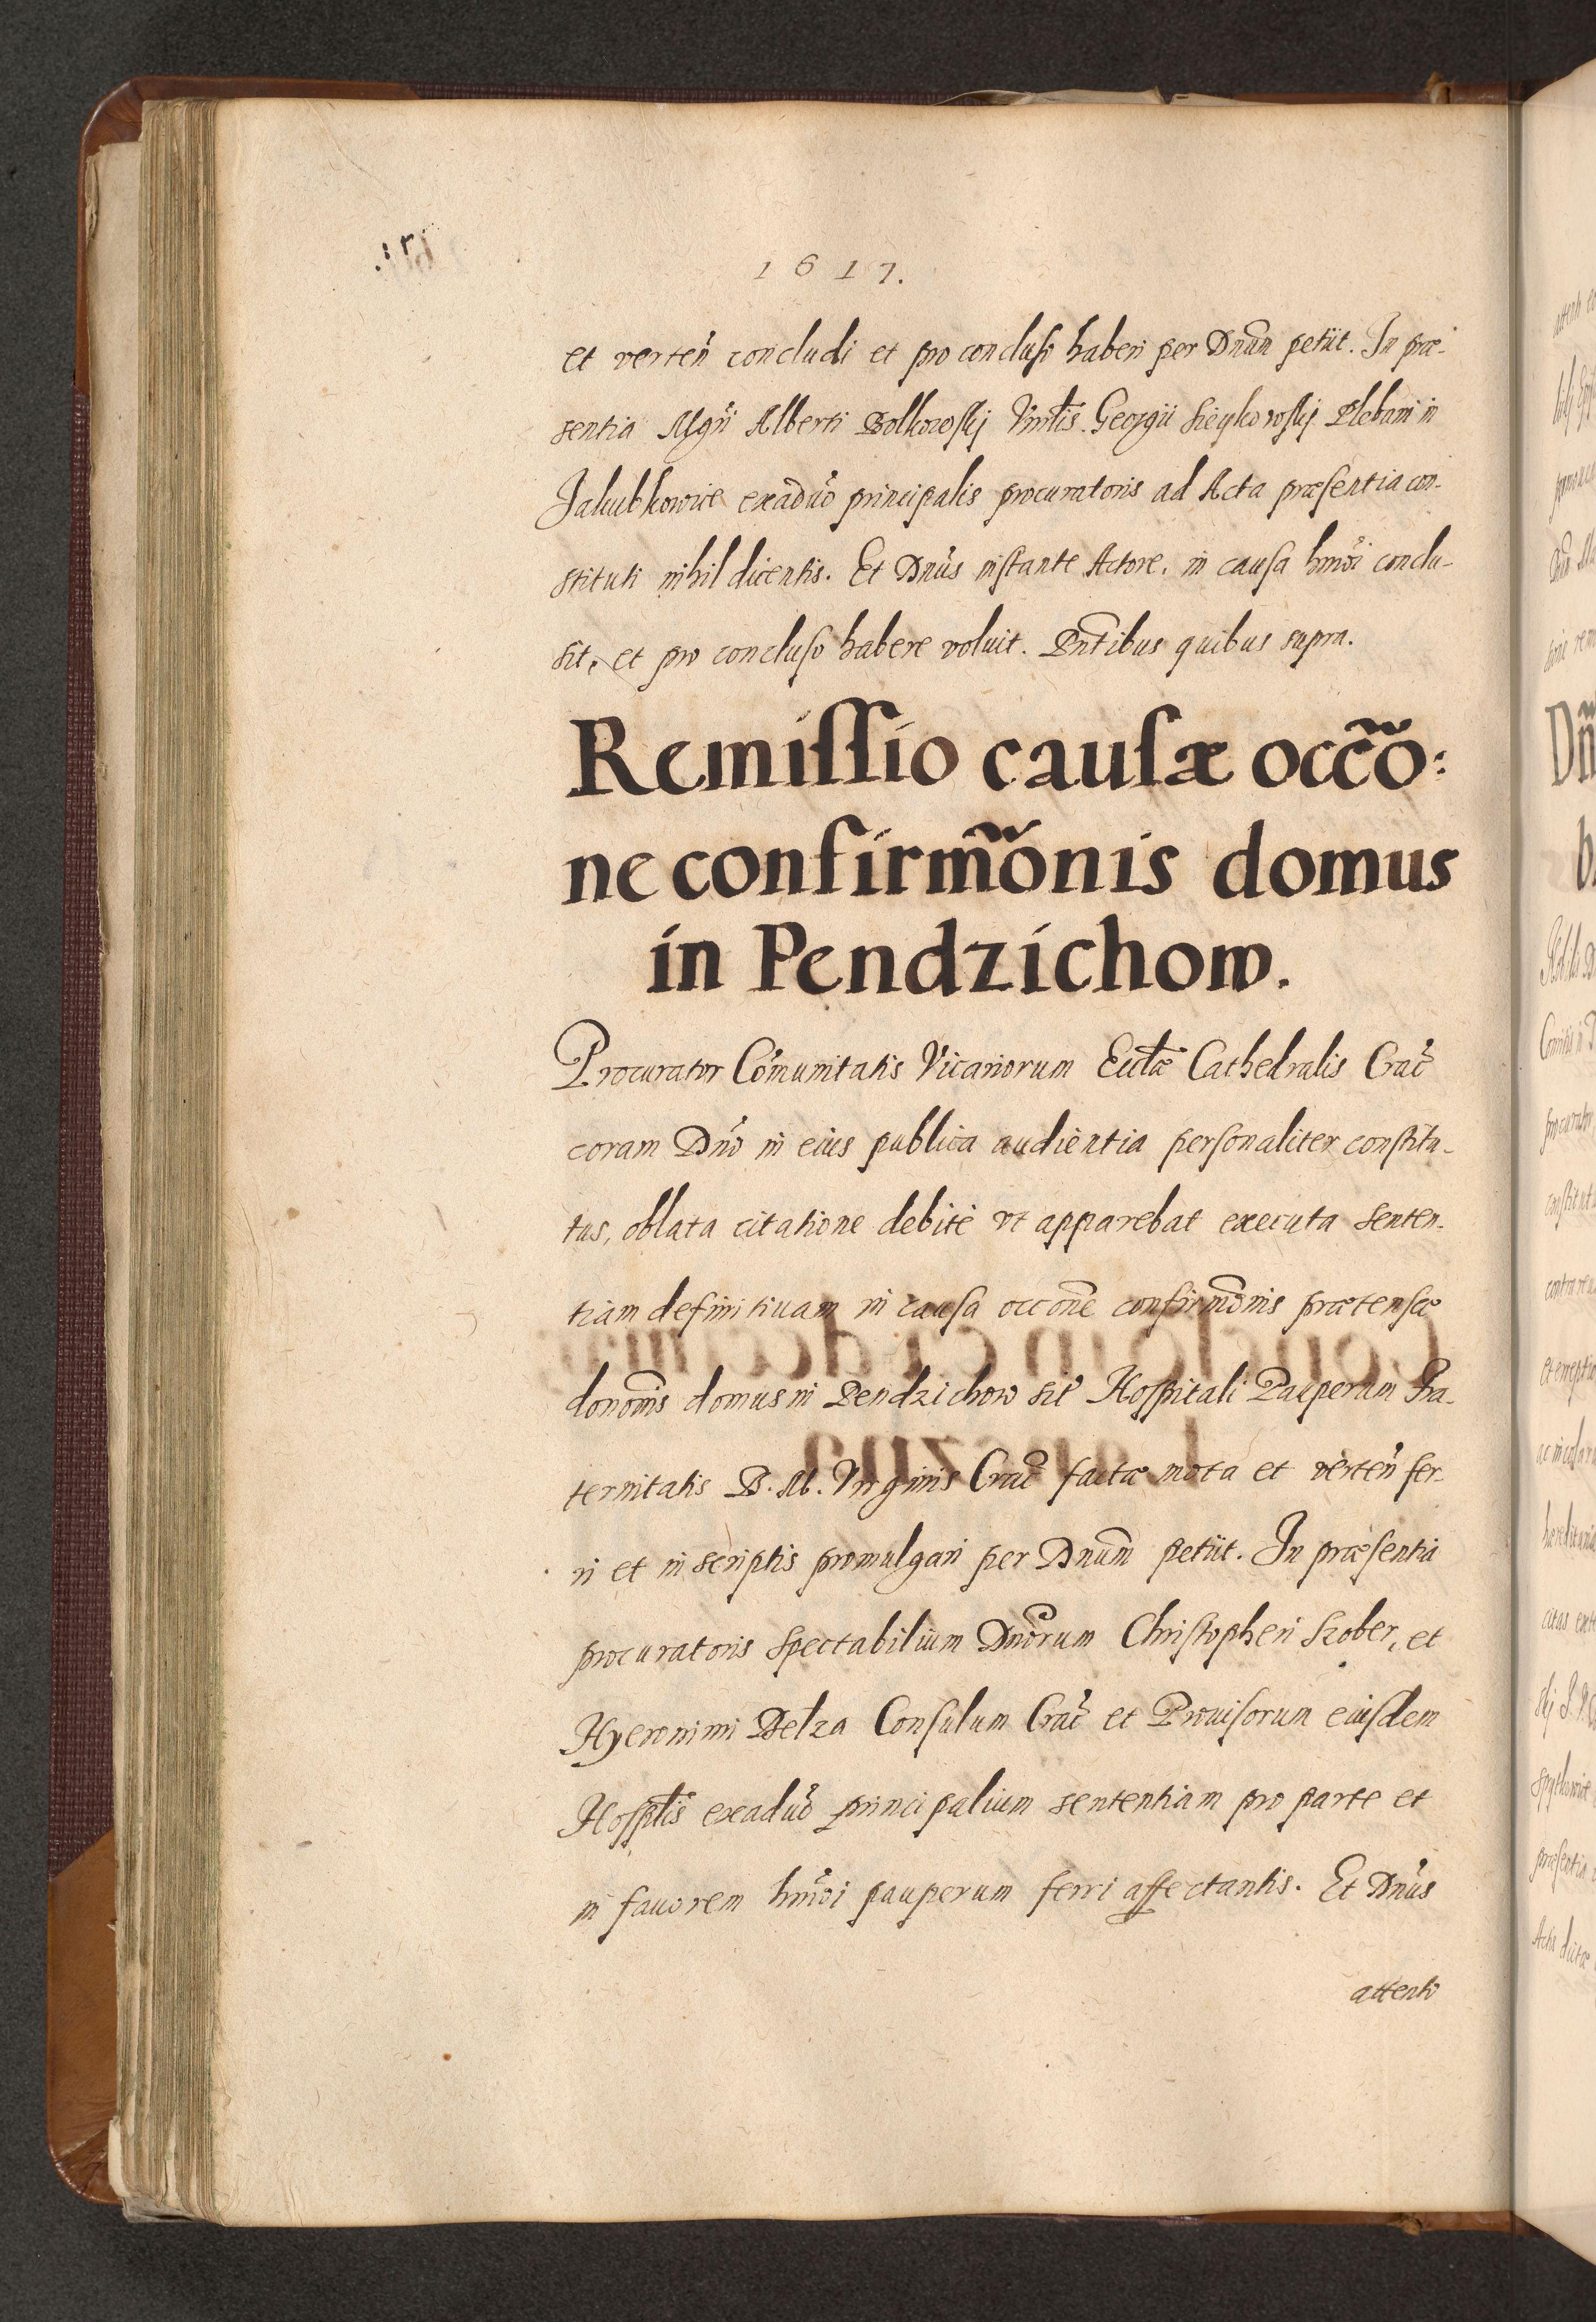 1617.
et verteñ concludi et pro concluso haberi per Dnum petiit. In præ-
sentia Mgri Alberti Bolkowskij Vnrlis Georgii Plebani in
Jakubkowice exaduo principalis procuratoris ad Acta præsentia con-
stituti nihil dicentis. Et Dnus instante Actore, in causa hmoi conclu-
sit, et pro concluso habere voluit. Pntibus quibus supra.
Remissio causæ occõ:
ne confirmõnis domus
in Pendzichow.
Procurator Comunitatis Vicariorum Ecclæ Cathedralis Crac
coram Dno in eius publica audientia personaliter constitu-
tus, oblata citatione debite vt apparebat executa senten-
tiam definitiuam in causa occone confirmonis prætensæ
donoonis domus in Pendzichow sit Hospitali Pauperum Fra-
ternitatis B. M. Virginis Crac factæ mota et verteñ fer-
ri et in scriptis promulgari per Dnum petiit. In præsentia
procuratoris Spectabilium Dnorum Christopheri Szober, et
Hyeronimi Belza Consulum Crac et Prouisorum eiusdem
Hospitlis exaduo principalium sententiam pro parte et
in fauorem hmoi pauperum ferri affectantis. Et Dnus
attento